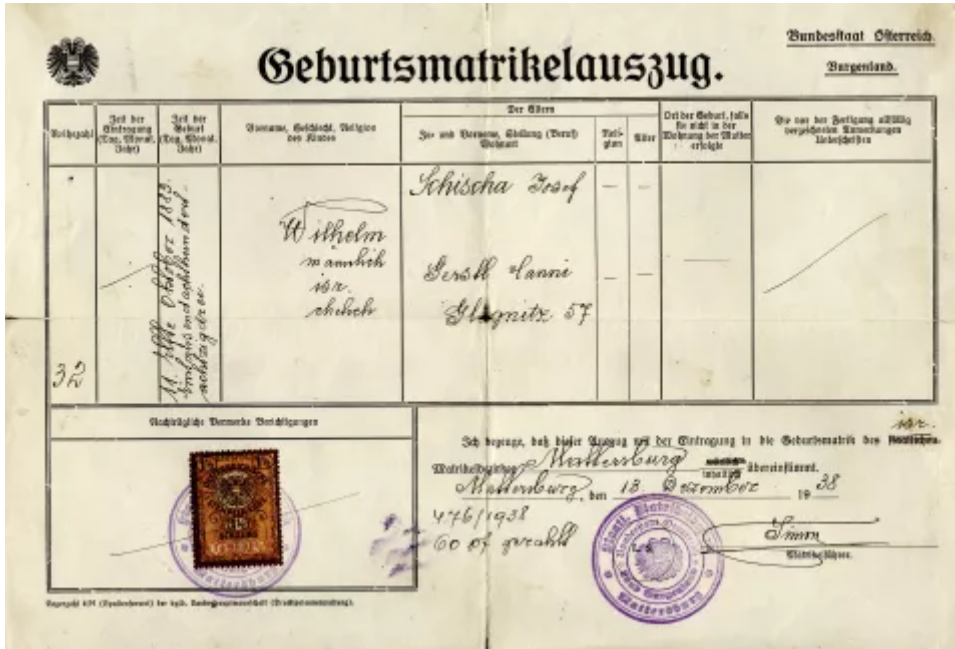 Bundesstaat Österreich.
Burgenland.
Geburtsmatrikelauszug.
Reihezahl
Zeit der Eintragung (Tag, Monat, Jahr)
Zeit der Geburt (Tag, Monat, Jahr)
Vorname, Geschlecht, Religion des Kindes
Der Eltern
Zu- und Vorname, Stellung (Beruf) Wohnort
Reli-
gion
Alter
Ort der Geburt, falls
sie nicht in der
Wohnung der Mutter
erfolgte
Die vor der Fertigung allfällig
verzeichneten Anmerkungen
Unterschriften
32
11. elfte Oktober 1883.
eintausendachthundert-
achtzigdrei.
Wilhelm
männlich
isr.
ehelich
Schischa Josef
Gerstl Hanni
57
Nachträgliche Vermerke Berichtigungen
15
isr.
Ich bezeuge, daß dieser Auszug mit der Eintragung in die Geburtsmatrik des
Matrikelbezirkes Mattersburg inhaltlich übereinstimmt.
Mattersburg, den 13 Dezember 1938
476/1938
60 gezahlt
Simon
Matrikelführer.
Mattersburg